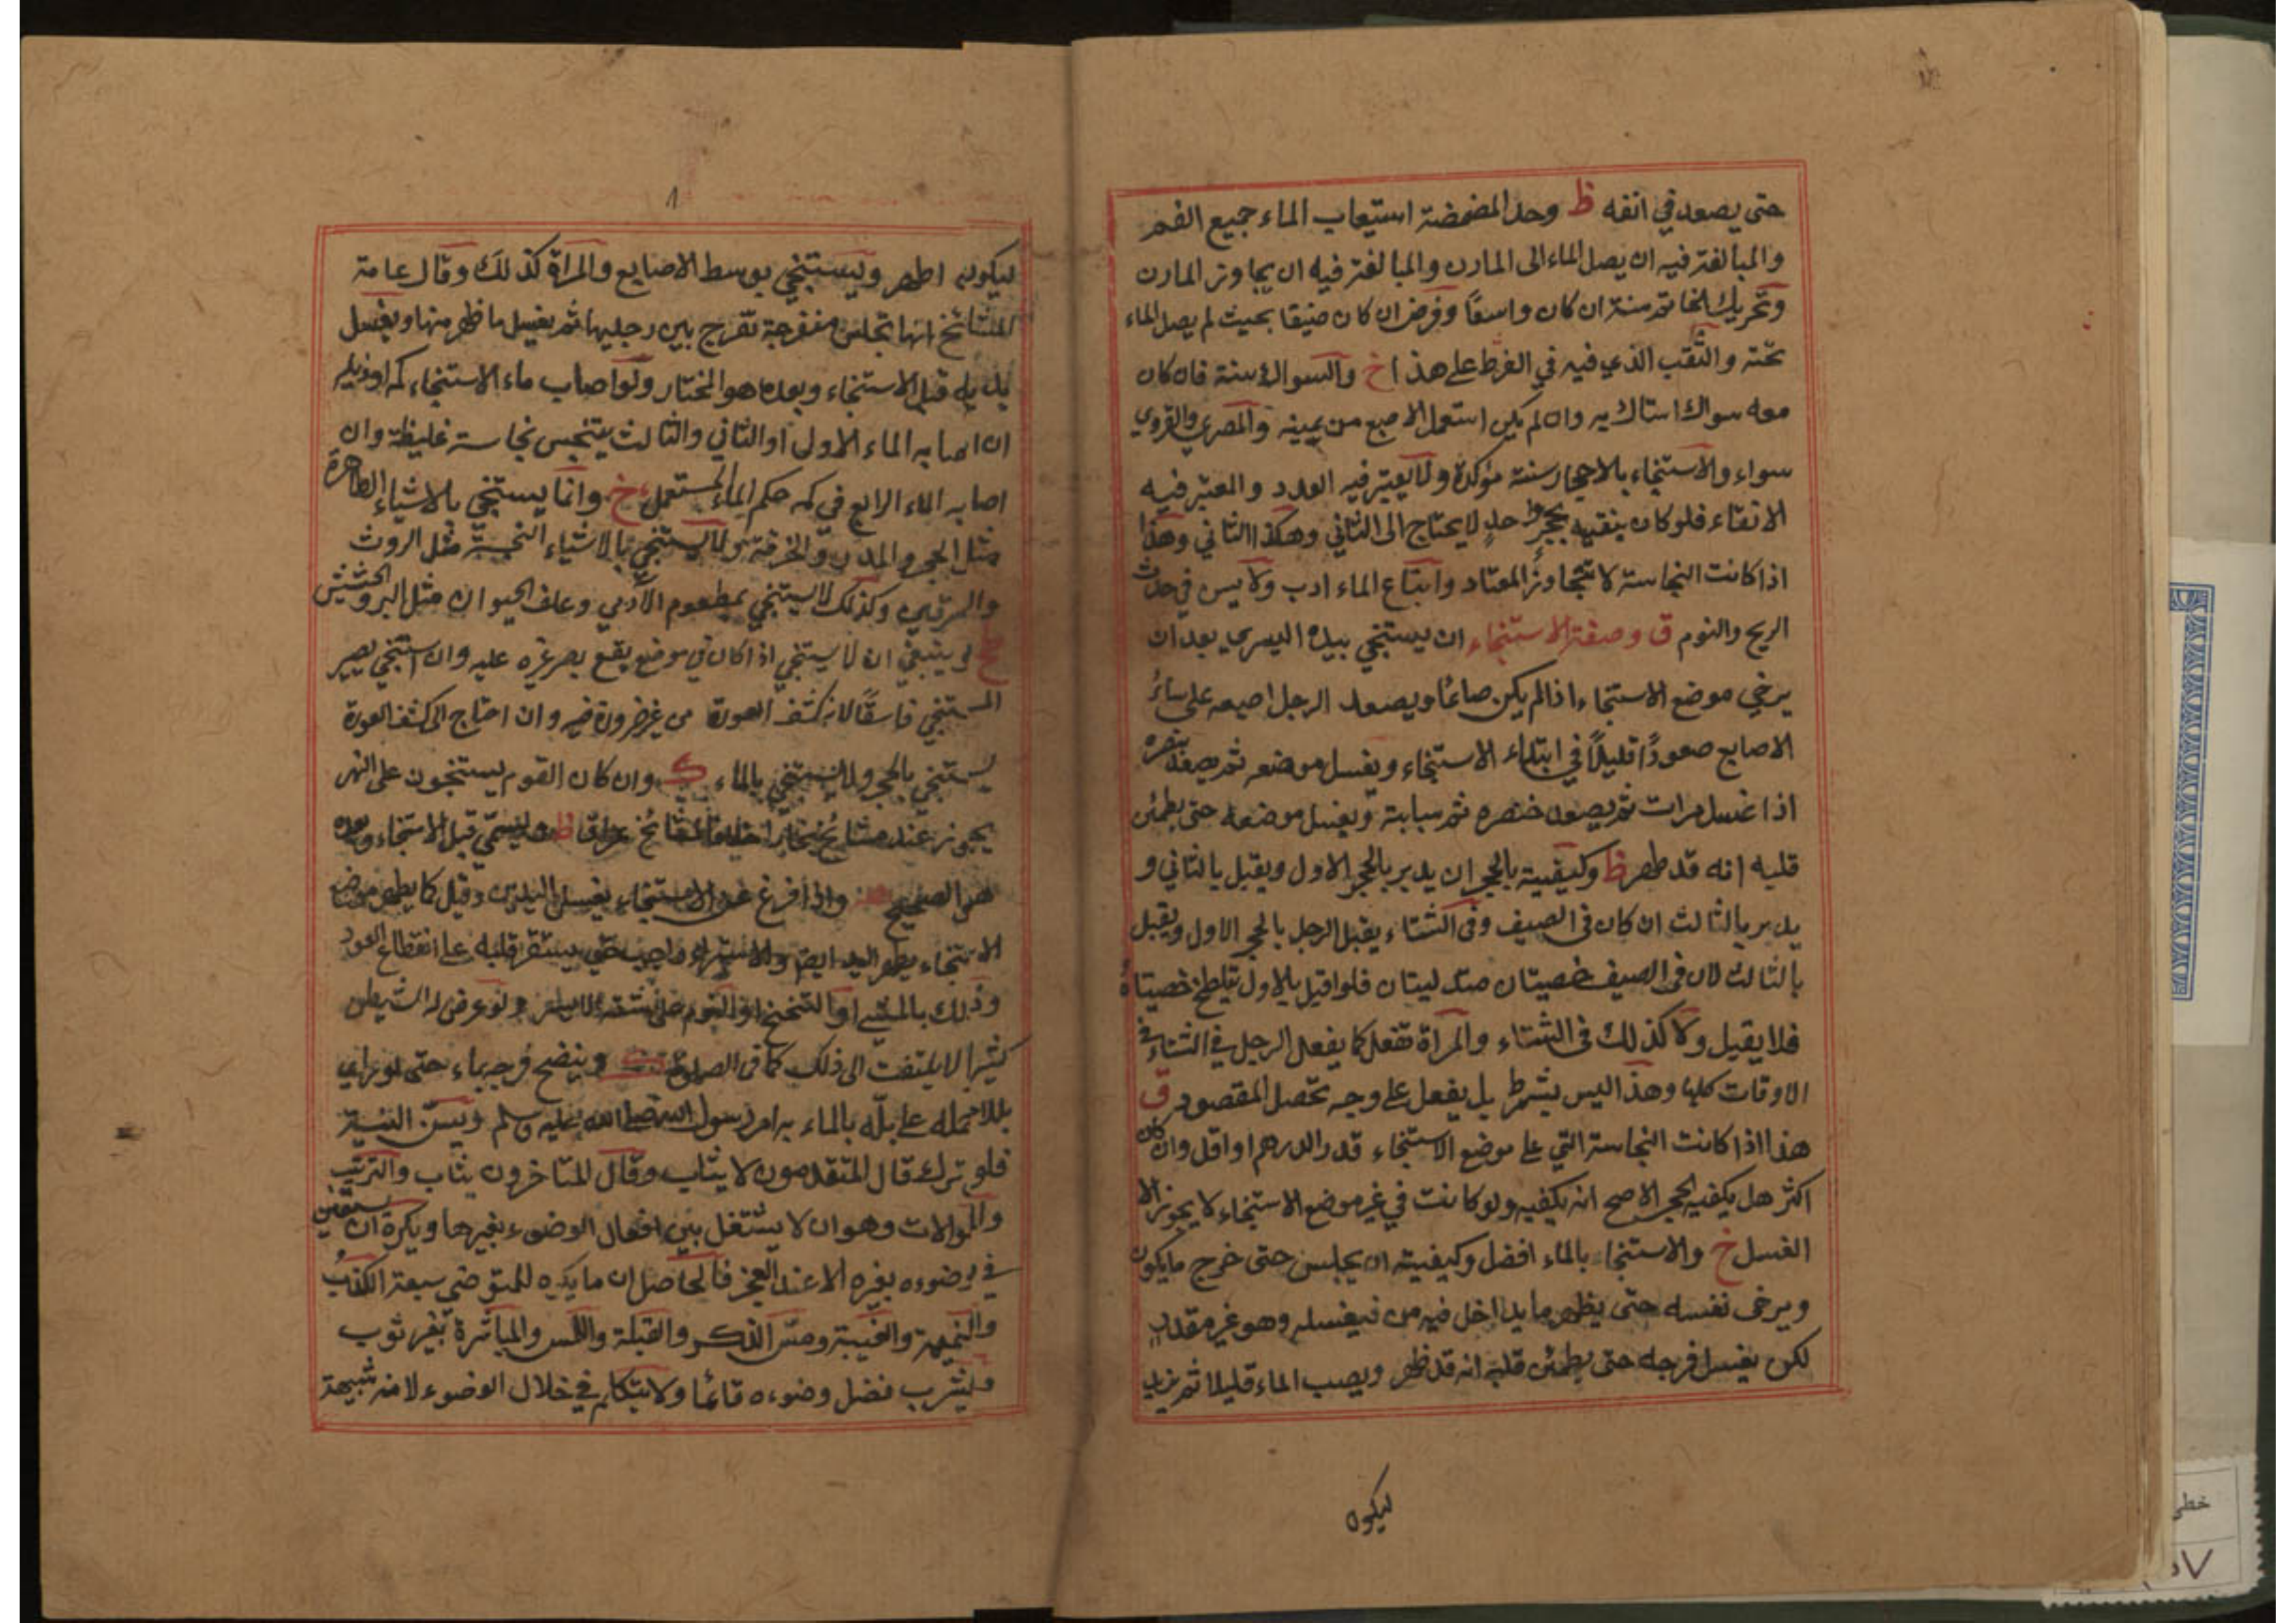 حتى يصعد في انفه ظ وحد المضمضة استيعاب الماء جميع الفم
والمبالغة فيه ان يصل الماء الى المارن والمبالغة فيه ان يجاوز المارن
وتحريك الخاتم سنة ان كان واسعًا وفرض ان كان ضيقا بحيث لم يصل الماء
تحته والثقب الذي فيه في القرط على هذا خ والسواك سنة فان كان
معه سواك استاك به وان لم يكن استعمل الاصبع من يمينه والمصري والقروي
سواء والاستنجاء بالاحجار سنة مؤكدة ولا يعتبر فيه العدد والمعتبر فيه
الانقاء فلو كان ينقيه بحجر واحد لا يحتاج الى الثاني وهكذا الثاني وهذا
اذا كانت النجاسة لا تتجاوز المعتاد واتباع الماء ادب ولا يسن في حدث
الريح والنوم ق وصفة الاستنجاء ان يستنجي بيده اليسرى بعد ان
يرخي موضع الاستنجاء اذا لم يكن صائمًا ويصعد الرجل اصبعه على سائر
الاصابع صعودًا قليلًا في ابتداء الاستنجاء ويغسل موضعه ثم يصعد بنصره
اذا غسل مرات ثم يصعد خنصره ثم سبابته ويغسل موضعه حتى يطمئن
قلبه انه قد طهر ظ وكيفيته بالحجر ان يدبر بالحجر الاول ويقبل بالثاني و
يدبر بالثالث ان كان في الصيف وفي الشتاء يقبل الرجل بالحجر الاول ويقبل
بالثالث لان في الصيف خصيتان متدليتان فلو اقبل بالاول يتلطخ خصيتاه
فلا يقبل ولا كذلك في الشتاء والمراة تفعل كما يفعل الرجل في الشتاء في
الاوقات كلها وهذا ليس بشرط بل يفعل على وجه تحصل المقصود ق
هذا اذا كانت النجاسة التي على موضع الاستنجاء قدر الدرهم او اقل وان كان
اكثر هل يكفيه الحجر الاصح انه يكفيه ولو كانت في غير موضع الاستنجاء لا يجوز الا
الغسل خ والاستنجاء بالماء افضل وكيفيته ان يجلس حتى خرج ما يكون
ويرخى نفسه حتى يظهر ما يداخل فيه من فيغسله وهو غير مقدر
لكن يغسل فرجه حتى يطمئن قلبه انه قد طهر ويصب الماء قليلا ثم يزيد
ليكون
ليكون اطهر ويستنجي بوسط الاصابع والمراة كذلك وقال عامة
المشائخ انها تجلس منفرجة تفرج بين رجليها ثم يغسل ما ظهر منها ويغسل
يديه قبل الاستنجاء وبعده هو المختار ولو اصاب ماء الاستنجاء كمه او ذيله
ان اصابه الماء الاول او الثاني والثالث يتنجس نجاسة غليظة وان
اصابه الماء الرابع في كمه حكم الماء المستعمل خ وانما يستنجي بالاشياء الطاهرة
مثل الحجر والمدر والخرقة ولا يستنجي بالاشياء النجسة مثل الروث
والسرقين وكذلك لا يستنجي بمطعوم الآدمي وعلف الحيوان مثل البر والحشيش
ينبغي ان لا يستنجي اذا كان في موضع يقع بصر غيره عليه وان استنجي يصير
المستنجي فاسقًا لانه كشف العورة من غير ضرورة فيه وان احتاج الى كشف العورة
يستنجي بالحجر ولا يستنجي بالماء وان كان القوم يستنجون على النهر
يجوز عند مشائخ بخارا خلافا لمشائخ عراق ظ يسمي قبل الاستنجاء وبعده
هو الصحيح واذا فرغ عن الاستنجاء يغسل اليدين وقيل كما يطهر موضع
الاستنجاء يطهر اليد ايضا والاستبراء واجب حتى يستقر قلبه على انقطاع العود
وذلك بالمشي او التنحنح او النوم على شقه الايسر ولو عرض له الشيطان
كثيرا لا يلتفت الى ذلك كما في الصلوة وينضح فرجه بماء حتى لو راى
بللا حمله على بلّه بالماء به امر رسول الله صلى الله عليه وسلم ويسن النية
فلو ترك قال المتقدمون لا يثاب وقال المتاخرون يثاب والترتيب
والموالات وهو ان لا يشتغل بين افعال الوضوء بغيرها ويكره ان يستعين
في وضوءه بغيره الا عند العجز فالحاصل ان ما يكره للمتوضي سبعة الكذب
والنميمة والغيبة ومس الذكر والقبلة واللمس والمباشرة بغير ثوب
ويشرب فضل وضوءه قائمًا ولا يتكلم في خلال الوضوء لانه شبيهة
خطي